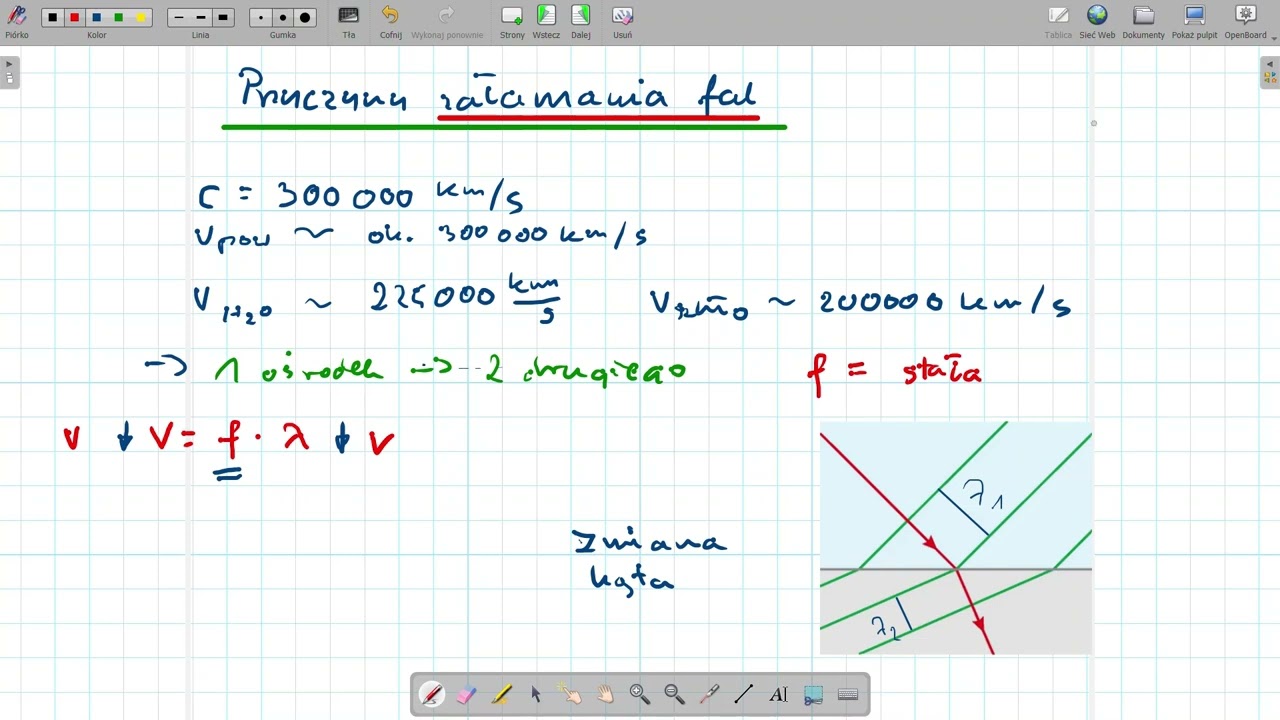 Piórko Kolor Linia Gumka Tła Cofnij Wykonaj ponownie Strony Wstecz Dalej Usuń Tablica Sieć Web Dokumenty Pokaż pulpit OpenBoard
Przyczyny załamania fal
c = 300 000 km/s
v pow ~ ok. 300 000 km/s
v H2O ~ 225 000 km/s v szkło ~ 200000 km/s
-> 1 ośrodek -> 2 drugiego f = stała
v ↓ v = f · λ ↓ v
λ1
zmiana
kąta
λ2
AI